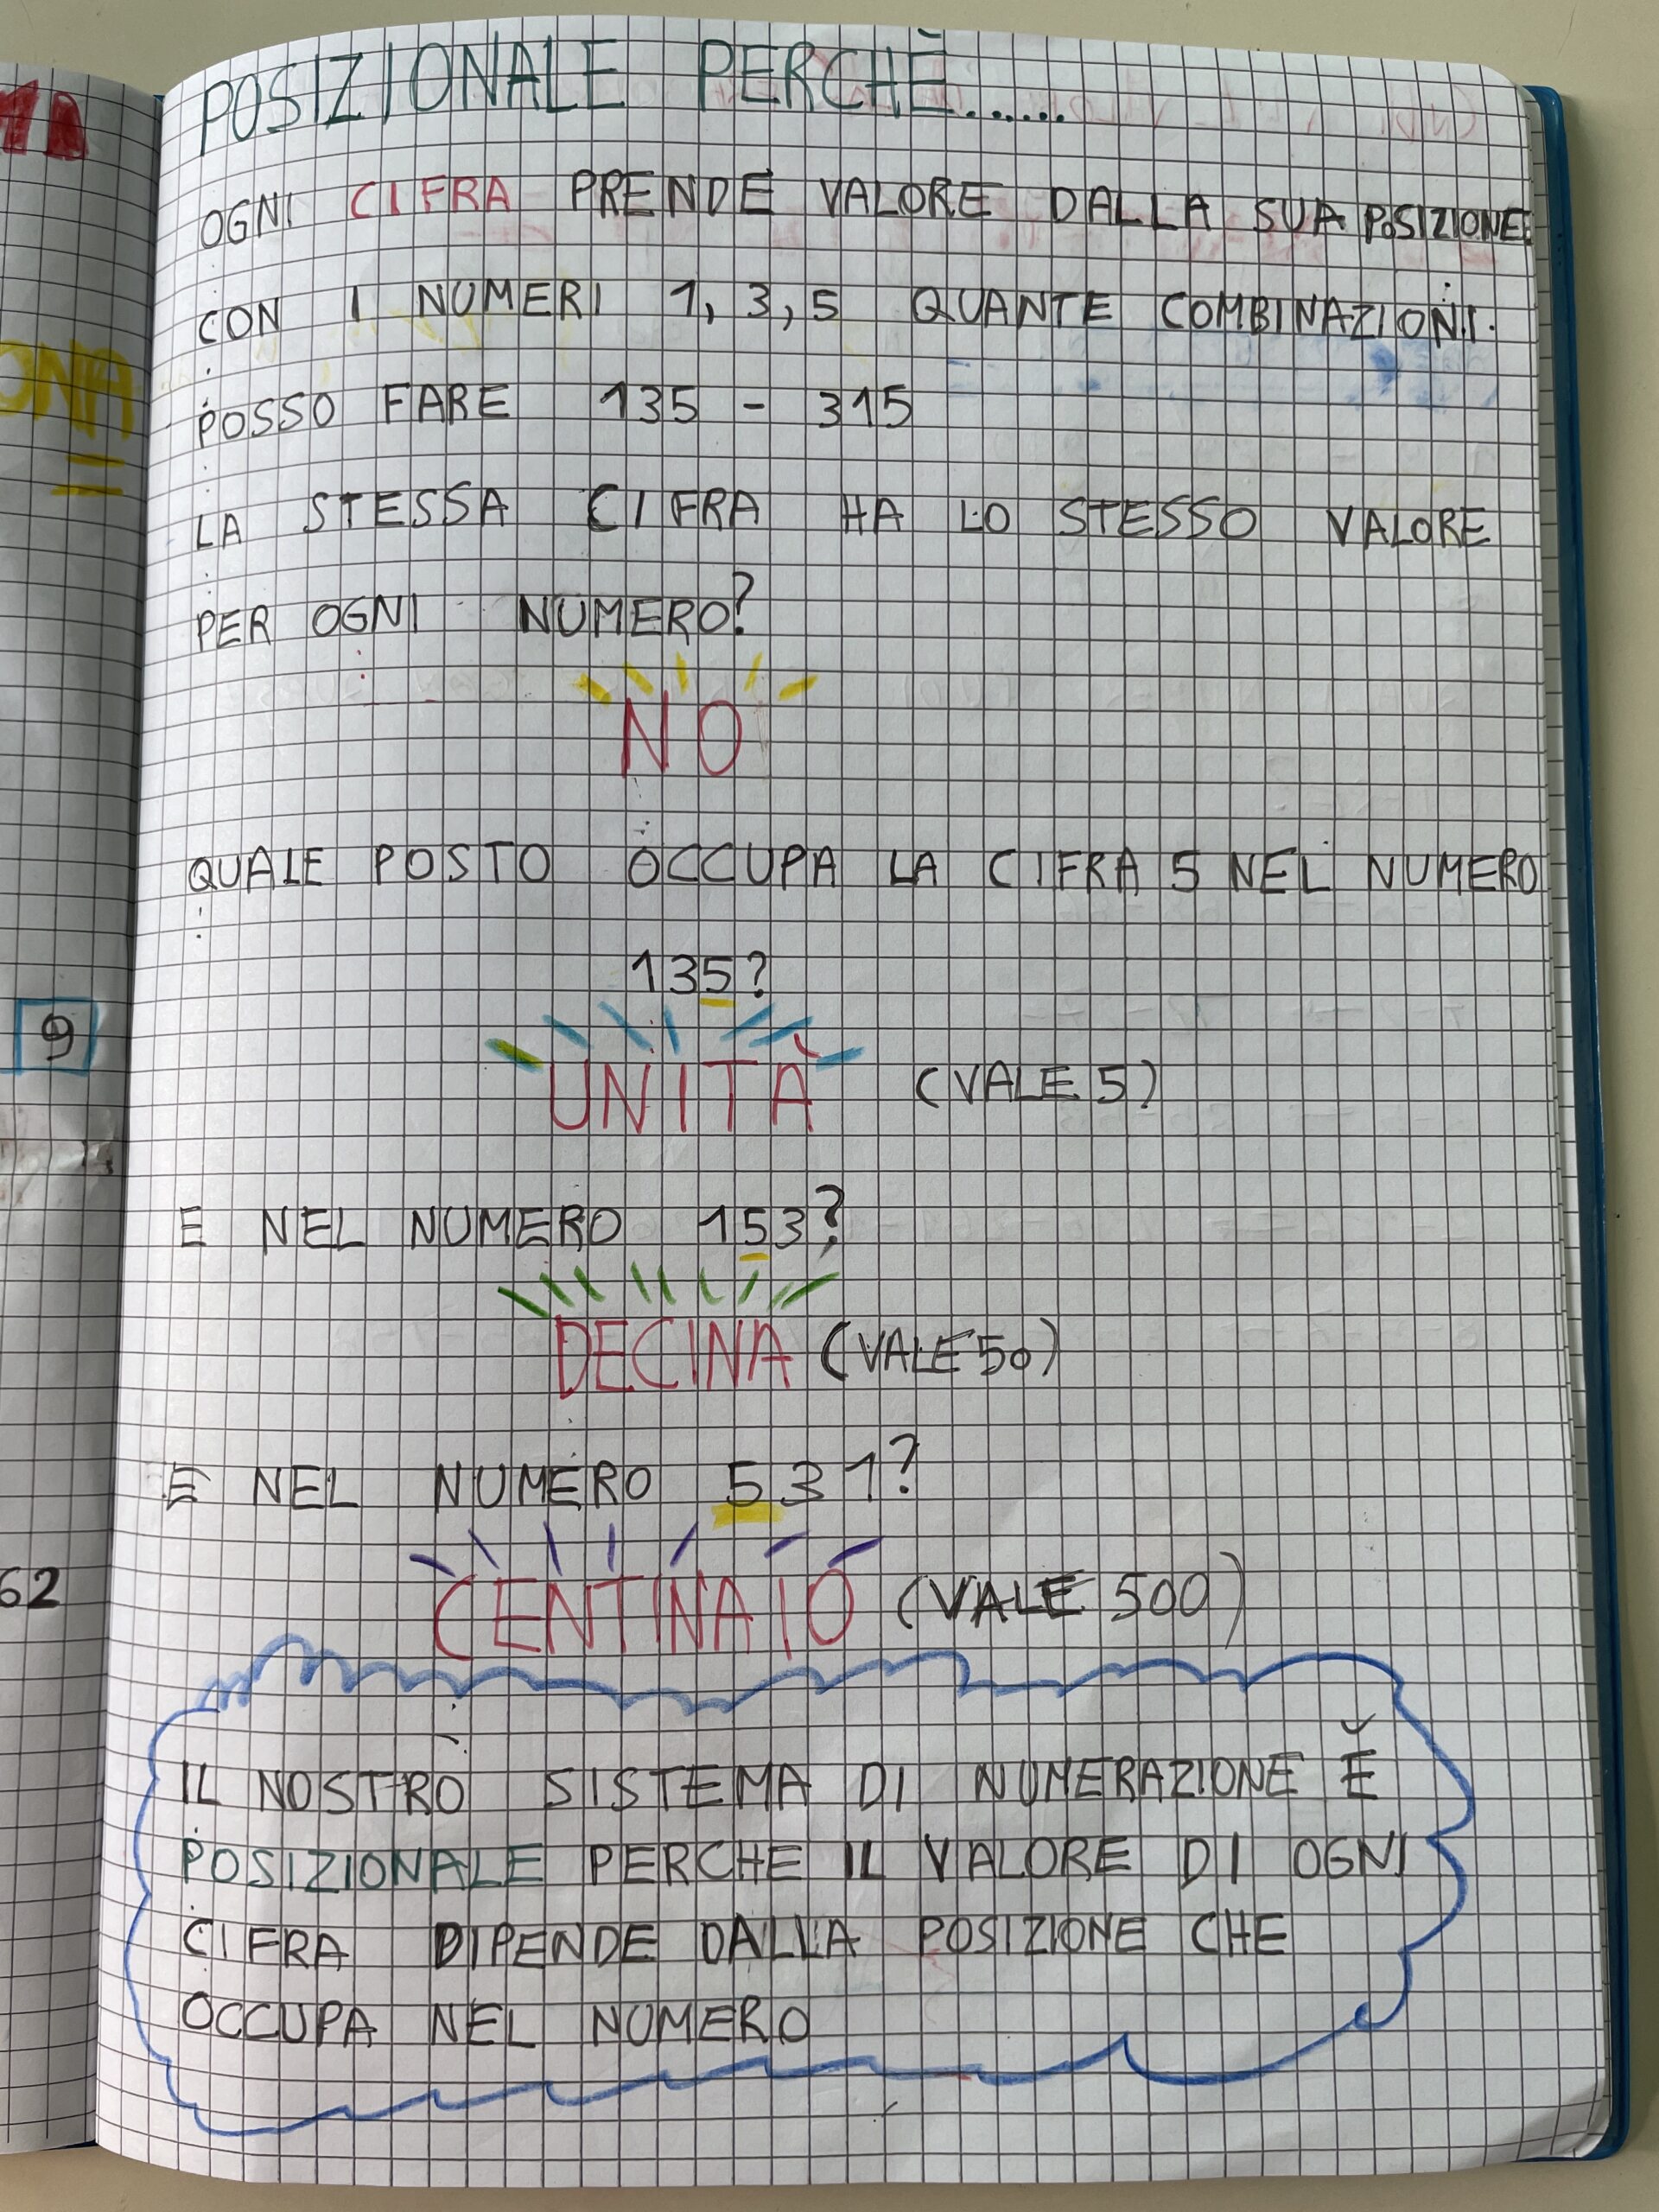 POSIZIONALE PERCHÈ......
OGNI CIFRA PRENDE VALORE DALLA SUA POSIZIONE
CON I NUMERI 1, 3, 5 QUANTE COMBINAZIONI
POSSO FARE 135 - 315
LA STESSA CIFRA HA LO STESSO VALORE
PER OGNI NUMERO?
NO
QUALE POSTO OCCUPA LA CIFRA 5 NEL NUMERO
135?
UNITÀ (VALE 5)
E NEL NUMERO 153?
DECINA (VALE 50)
E NEL NUMERO 531?
CENTINAIO (VALE 500)
IL NOSTRO SISTEMA DI NUMERAZIONE È
POSIZIONALE PERCHE IL VALORE DI OGNI
CIFRA DIPENDE DALLA POSIZIONE CHE
OCCUPA NEL NUMERO
ONA
9
62